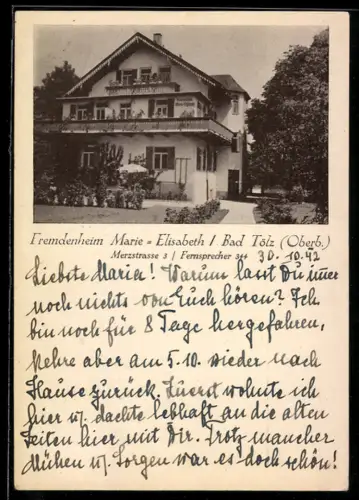 Fremdenheim Marie = Elisabeth / Bad Tölz (Oberb.)
Merzstrasse 3 / Fernsprecher 344 30.10.42
Liebste Maria! Warum lasst Du imer
noch nichts von Euch hören? Ich
bin noch für 8 Tage hergefahren,
kehre aber am 5.10. wieder nach
Hause zurück. Zuerst wohnte ich
hier u. dachte lebhaft an die alten
Zeiten hier mit Dir. Trotz mancher
Mühen u. Sorgen war es doch schön!